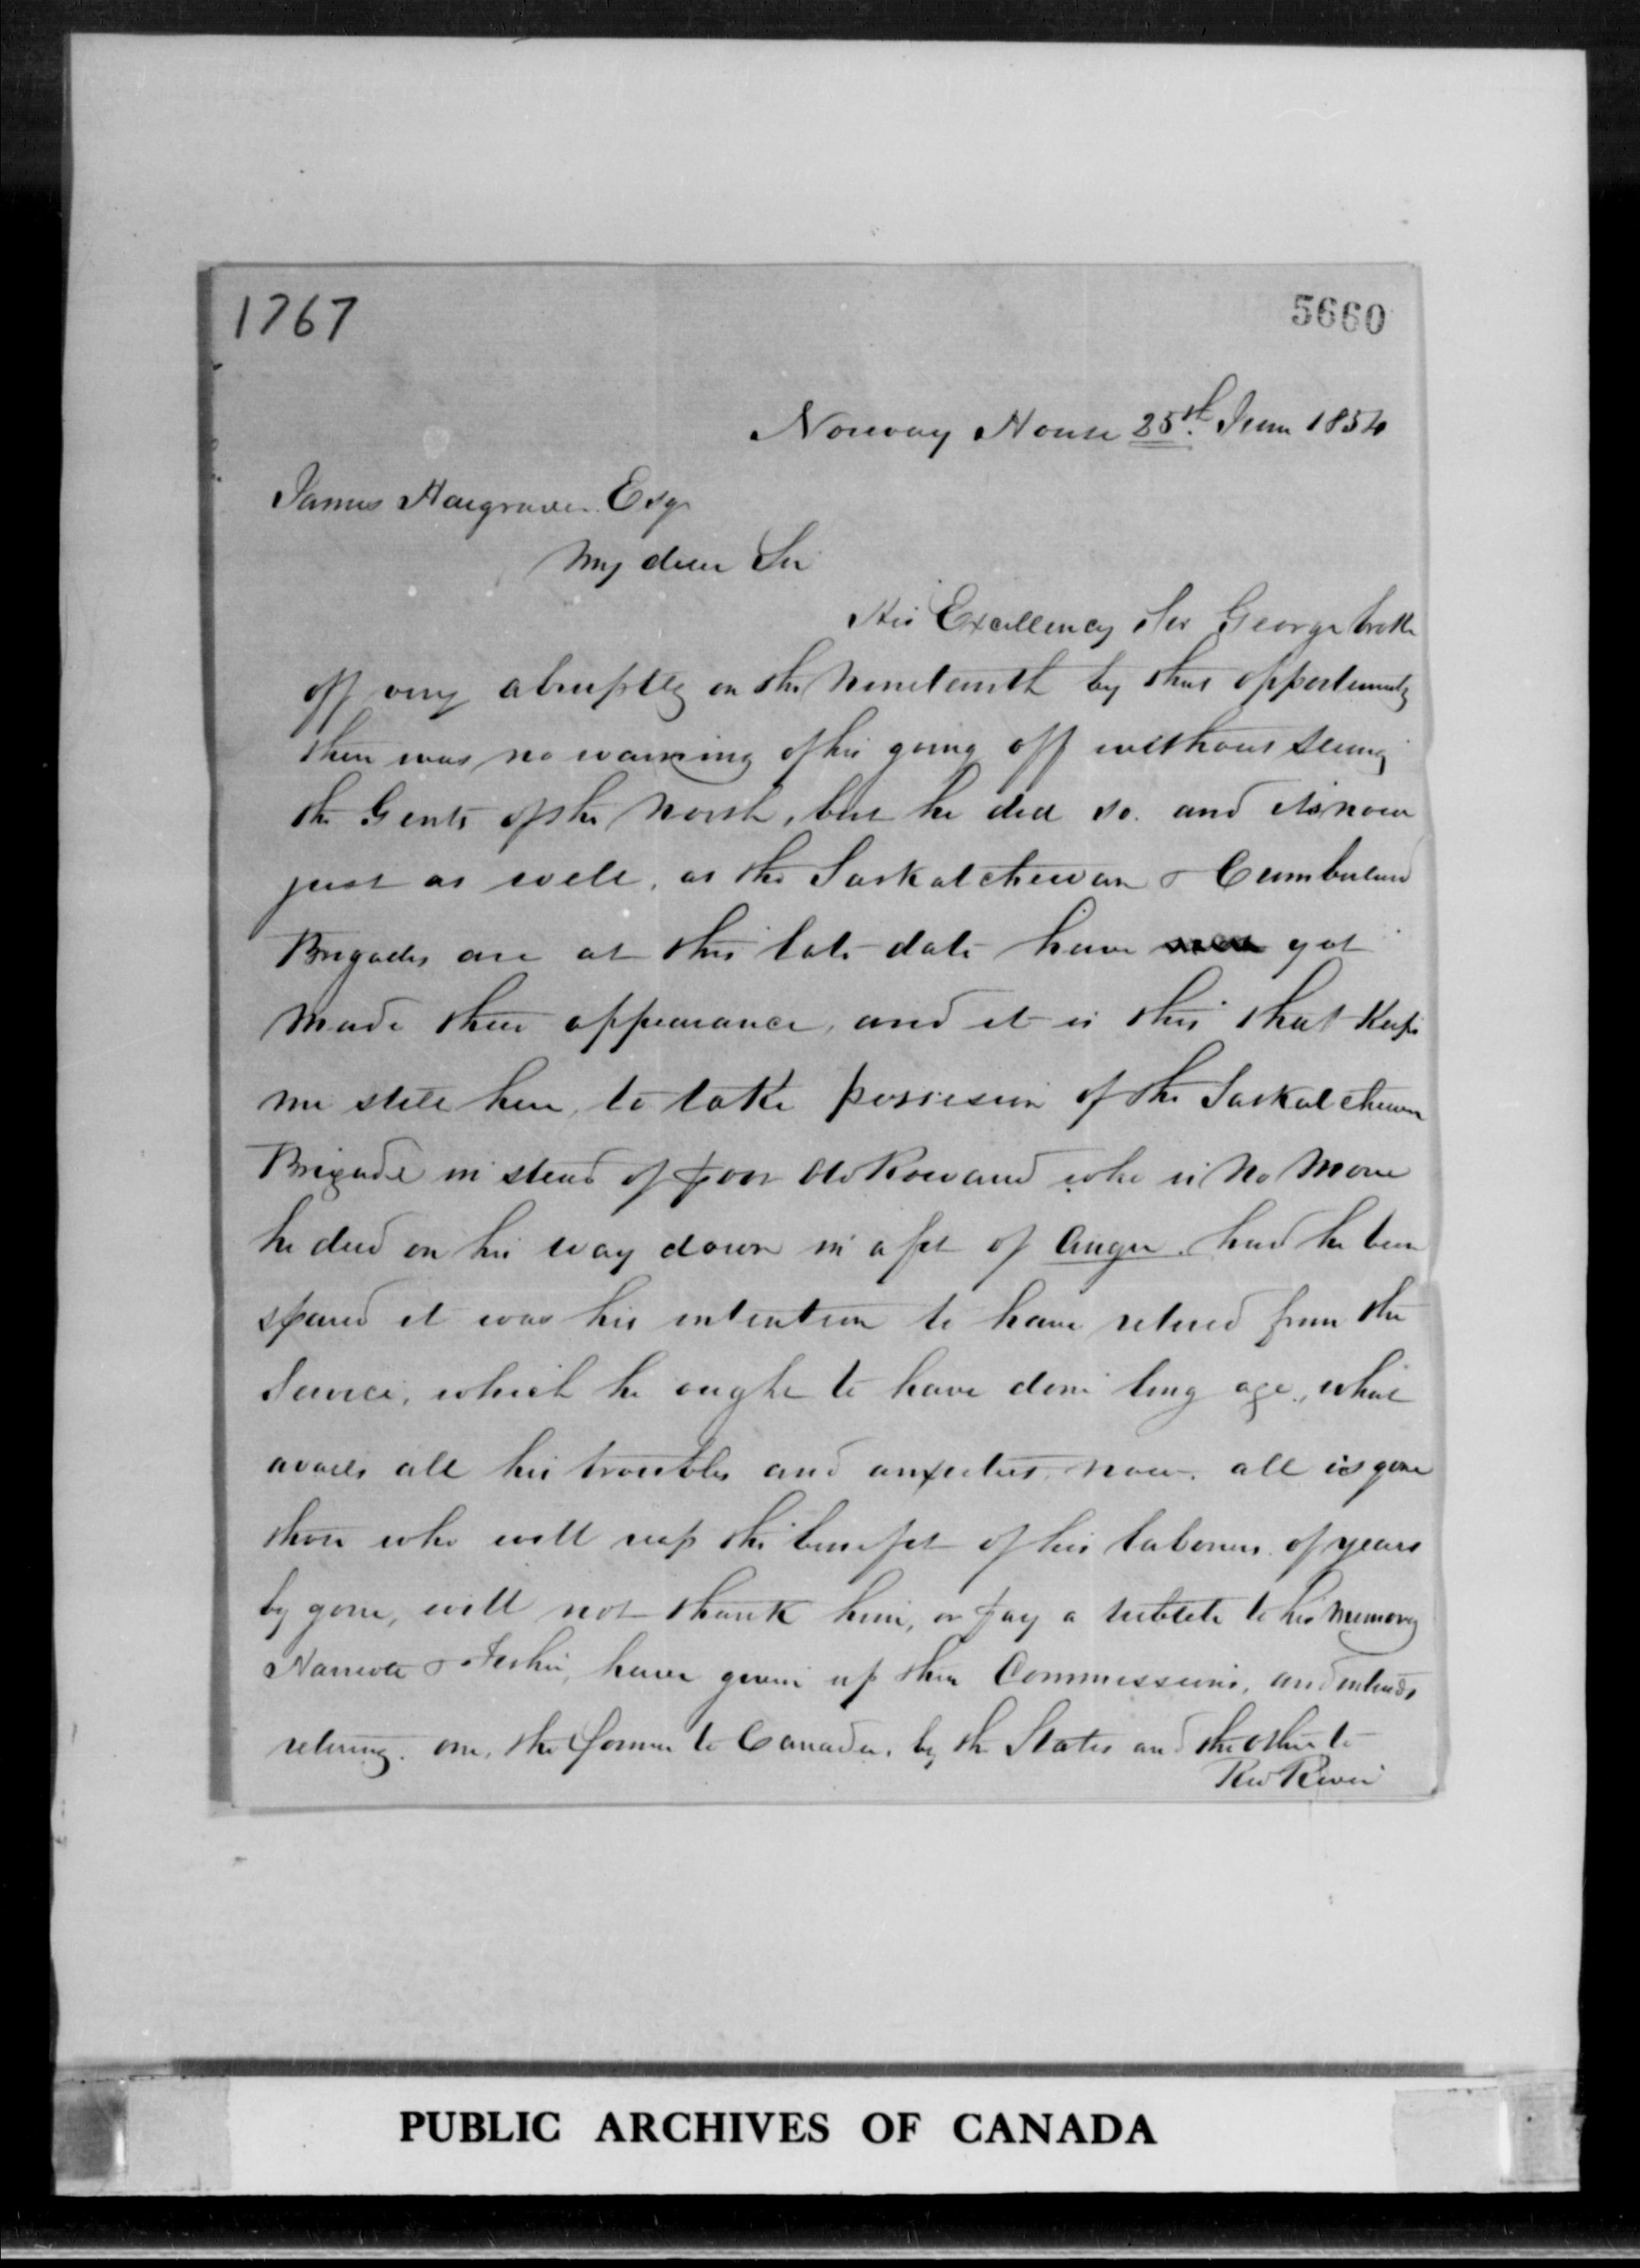 1767
5660
Norway House 25th June 1854
James Hargrave Esqr
My dear Sir
His Excellency Sir George broke
off very abruptly on the Nineteenth by that opportunity
there was no warning of his going off without seeing
the Gents of the North, but he did so. and its now
just as well, as the Saskatchewan & Cumberland
Brigades are at this late date have yet
made their appearance, and it is this that keeps
me still here, to take possession of the Saskatchewan
Brigade in stead of poor Old Rowand who is No More
he died on his way down in a fit of Anger. had he been
spared it was his intention to have retired from the
Service, which he ought to have done long ago, what
avails all his troubles and anxieties now. all is gone
those who will reap the benefit of his labours of years
by gone, will not thank him, or pay a tribute to his Memory
Harriott & have given up their Commissions, and intends
retiring. one, the former to Canada, by the States and the other to
Red River
PUBLIC ARCHIVES OF CANADA